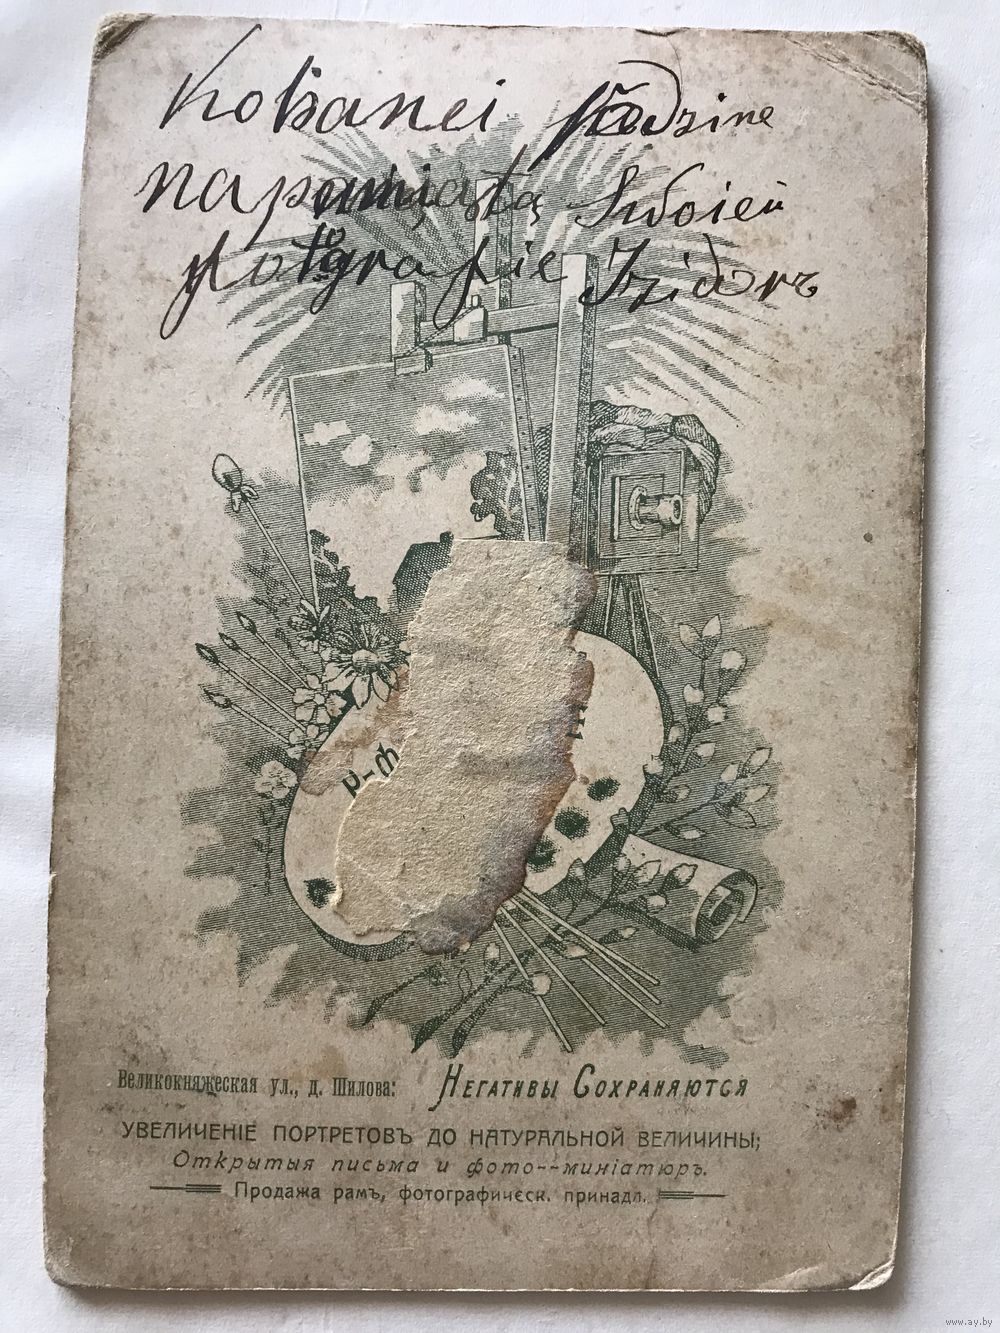 Kohanei Rodzine
na pamiąstą Swoieu
fotgrafie Izidor
Великокняжеская ул., д. Шилова:
Негативы Сохраняются
УВЕЛИЧЕНІЕ ПОРТРЕТОВЪ ДО НАТУРАЛЬНОЙ ВЕЛИЧИНЫ;
Открытыя письма и фото--миніатюръ.
Продажа рамъ, фотографическ. принадл.
www.ay.by